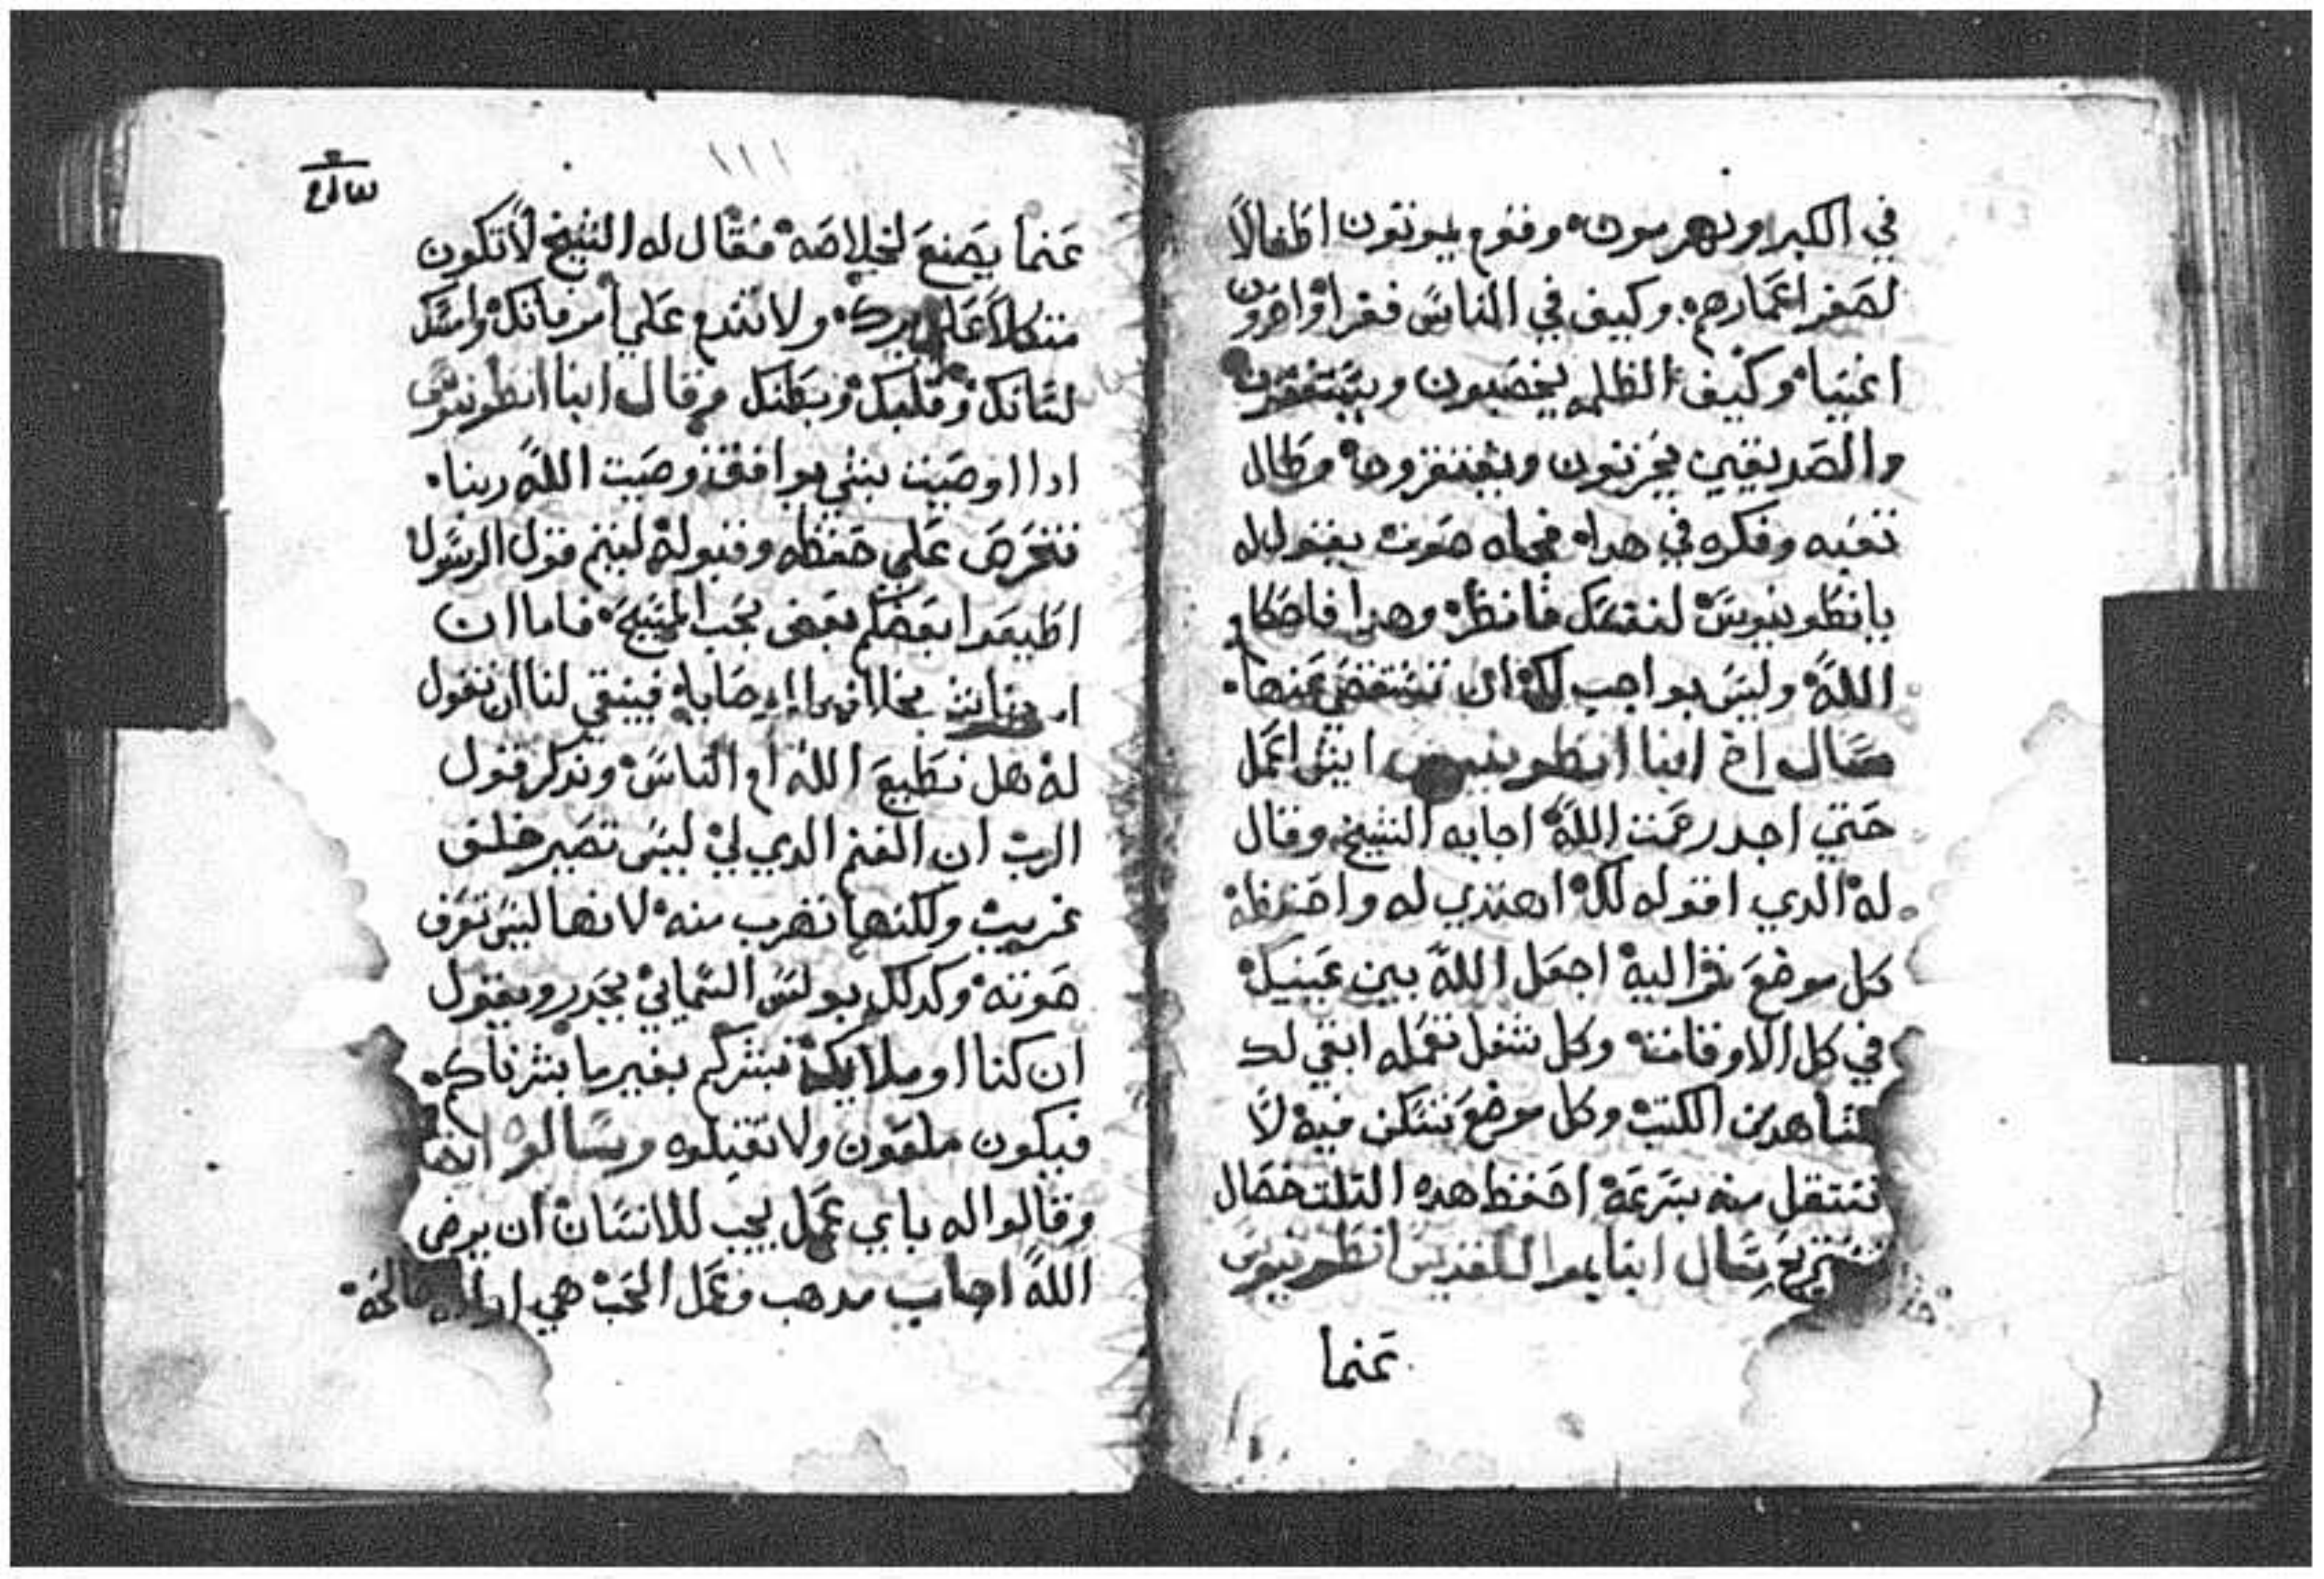 في الكبر ويهرمون وقوم يموتون اطفالاً
لصغر اعمارهم وكيف في الناس فقرا واخرون
اغنيا وكيف الظلمه يخصبون ويستغنون
والصديقين يحزنون ويفتقرون وطال
تعبه وفكره في هدا فجاه صوت يقول له
يانطونيوس لنفسك فانظر وهدا فاحكام
الله وليس بواجب لك ان تستقصي عنها
سال اخ ابنا انطونيوس ايش اعمل
حتي اجد رحمت الله اجابه الشيخ وقال
له الدي اقوله لك اهتدي له واحفظه
كل موضع تمر اليه اجعل الله بين عينيك
في كل الاوقات وكل شغل تعمله ابقي لك
شاهد من الكتب وكل موضع تسكن فيه لا
تنتقل منه بسرعه احفظ هده التلت خصال
تستريح سال ابنا بموا للقديس انطونيوس
عنما
١١١
عنما يصنع لخلاصه فقال له الشيخ لا تكون
متكلا علي برك ولا تندم علي امر فاتك وامسك
لسانك وقلبك وبطنك وقال ابنا انطونيوس
ادا اوصيت بشي يوافق وصيت الله ربنا
فتحرص علي حفظه وقبوله ليتم قول الرسول
اطيعوا بعضكم بعض بحب المسيح فاما ان
بخلاف فينبغي لنا ان نقول
له هل نطيع الله ام الناس وندكر قول
الرب ان الغنم الدي لي ليس تصير خلف
غريب ولكنها تهرب منه لانها ليس تعرف
صوته وكدلك بولس السماني يحدر ويقول
ان كنا او ملايكة نبشركم بغير ما بشرناكم
فيكون ملعون ولا تقبلوه وسالوا ايضا
وقالوا له باي عمل يجب للانسان ان يرضي
الله اجاب مدهب وعمل الحب هي